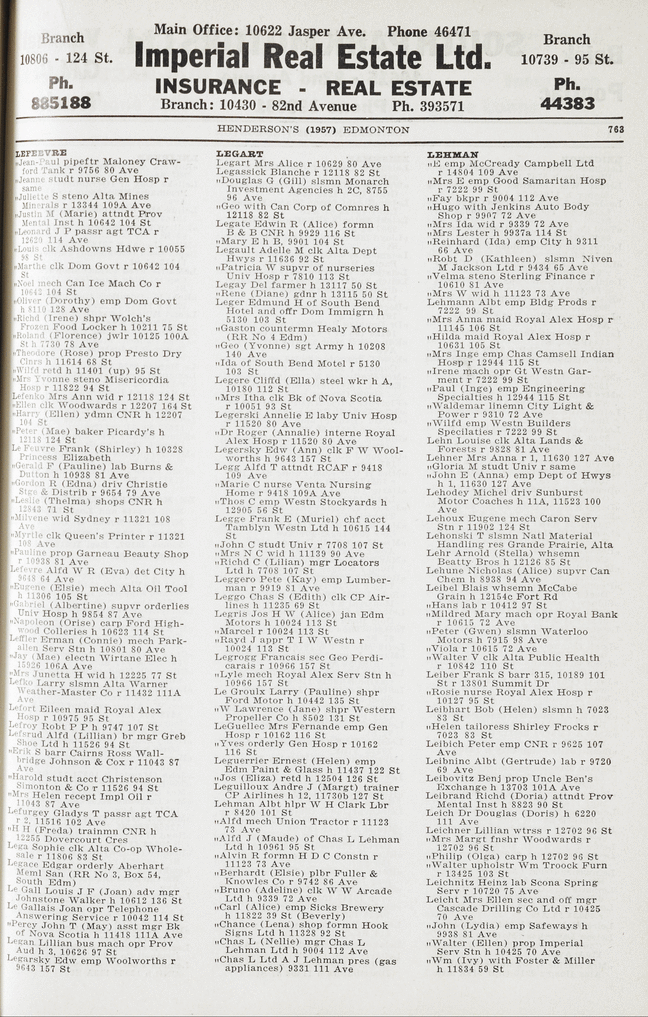 Branch
10806 - 124 St.
Ph.
885188
Main Office: 10622 Jasper Ave. Phone 46471
Imperial Real Estate Ltd.
INSURANCE - REAL ESTATE
Branch: 10430 - 82nd Avenue Ph. 393571
Branch
10739 - 95 St.
Ph.
44383
HENDERSON'S (1957) EDMONTON 763
LEFEBVRE
"Jean-Paul pipeftr Maloney Craw-
ford Tank r 9756 80 Ave
"Jeanne studt nurse Gen Hosp r
same
"Juliette S steno Alta Mines
Minerals r 13344 109A Ave
"Justin M (Marie) attndt Prov
Mental Inst h 10642 104 St
"Leonard J P passr agt TCA r
12620 114 Ave
"Louis clk Ashdowns Hdwe r 10055
98 St
"Marthe clk Dom Govt r 10642 104
St
"Noel mech Can Ice Mach Co r
10642 104 St
"Oliver (Dorothy) emp Dom Govt
h 8110 128 Ave
"Richd (Irene) shpr Welch's
Frozen Food Locker h 10211 75 St
"Roland (Florence) jwlr 10125 100A
St h 7730 78 Ave
"Theodore (Rose) prop Presto Dry
Clnrs h 11614 68 St
"Wilfd retd h 11401 (up) 95 St
"Mrs Yvonne steno Misericordia
Hosp r 11822 94 St
Lefenko Mrs Ann wid r 12118 124 St
"Ellen clk Woodwards r 12207 164 St
"Harry (Ellen) ydmn CNR h 12207
104 St
"Peter (Mae) baker Picardy's h
12118 124 St
Le Feuvre Frank (Shirley) h 10328
Princess Elizabeth
"Gerald F (Pauline) lab Burns &
Dutton h 10938 81 Ave
"Gordon R (Edna) driv Christie
Stge & Distrib r 9654 79 Ave
"Leslie (Thelma) shops CNR h
12843 71 St
"Milvene wid Sydney r 11321 108
Ave
"Myrtle clk Queen's Printer r 11321
108 Ave
"Pauline prop Garneau Beauty Shop
r 10938 81 Ave
Lefevre Alfd W R (Eva) det City h
9618 64 Ave
"Eugene (Elsie) mech Alta Oil Tool
h 11306 105 St
"Gabriel (Albertine) supvr orderlies
Univ Hosp h 9854 87 Ave
"Napoleon (Orise) carp Ford High-
wood Colleries h 10623 114 St
Leffler Erman (Connie) mech Park-
allen Serv Stn h 10801 80 Ave
"Jay (Mae) electn Wirtane Elec h
15926 106A Ave
"Mrs Junetta H wid h 12225 77 St
Lefko Larry slsmn Alta Warner
Weather-Master Co r 11432 111A
Ave
Lefort Eileen maid Royal Alex
Hosp r 10975 95 St
Lefroy Robt P P h 9747 107 St
Lefsrud Alfd (Lillian) br mgr Greb
Shoe Ltd h 11526 94 St
"Erik S barr Cairns Ross Wall-
bridge Johnson & Cox r 11043 87
Ave
"Harold studt acct Christenson
Simonton & Co r 11526 94 St
"Mrs Helen recept Impl Oil r
11043 87 Ave
Lefurgey Gladys T passr agt TCA
r 2, 11516 102 Ave
"H H (Freda) trainmn CNR h
12255 Dovercourt Cres
Lega Sophie clk Alta Co-op Whole-
sale r 11806 83 St
Legace Edgar orderly Aberhart
Meml San (RR No 3, Box 54,
South Edm)
Le Gall Louis J F (Joan) adv mgr
Johnstone Walker h 10612 136 St
Le Gallais Joan opr Telephone
Answering Service r 10042 114 St
"Percy John T (May) asst mgr Bk
of Nova Scotia h 11418 111A Ave
Legan Lillian bus mach opr Prov
Aud h 3, 10626 97 St
Legarsky Edw emp Woolworths r
9643 157 St
LEGART
Legart Mrs Alice r 10629 80 Ave
Legassick Blanche r 12118 82 St
"Douglas G (Gill) slsmn Monarch
Investment Agencies h 2C, 8755
96 Ave
"Geo with Can Corp of Comnres h
12118 82 St
Legate Edwin R (Alice) formn
B & B CNR h 9929 116 St
"Mary E h B, 9901 104 St
Legault Adelle M clk Alta Dept
Hwys r 11636 92 St
"Patricia W supvr of nurseries
Univ Hosp r 7810 113 St
Legay Del farmer h 13117 50 St
"Rene (Diane) gdnr h 13115 50 St
Leger Edmund H of South Bend
Hotel and offr Dom Immigrn h
5130 103 St
"Gaston countermn Healy Motors
(RR No 4 Edm)
"Geo (Yvonne) sgt Army h 10208
140 Ave
"Ida of South Bend Motel r 5130
103 St
Legere Cliffd (Ella) steel wkr h A,
10180 112 St
"Mrs Itha clk Bk of Nova Scotia
r 10051 93 St
Legerski Annelie E laby Univ Hosp
r 11520 80 Ave
"Dr Roger (Annalie) interne Royal
Alex Hosp r 11520 80 Ave
Legersky Edw (Ann) clk F W Wool-
worths h 9643 157 St
Legg Alfd T attndt RCAF r 9418
109 Ave
"Marie C nurse Venta Nursing
Home r 9418 109A Ave
"Thos C emp Westn Stockyards h
12905 56 St
Legge Frank E (Muriel) chf acct
Tamblyn Westn Ltd h 10615 144
St
"John C studt Univ r 7708 107 St
"Mrs N C wid h 11139 90 Ave
"Richd C (Lilian) mgr Locators
Ltd h 7708 107 St
Leggero Pete (Kay) emp Lumber-
man r 9919 81 Ave
Leggo Chas S (Edith) clk CP Air-
lines h 11235 69 St
Legris Jos H W (Alice) jan Edm
Motors h 10024 113 St
"Marcel r 10024 113 St
"Rayd J appr T I W Westn r
10024 113 St
Legrogg Francais sec Geo Perdi-
carais r 10966 157 St
"Lyle mech Royal Alex Serv Stn h
10966 157 St
Le Groulx Larry (Pauline) shpr
Ford Motor h 10442 135 St
"W Lawrence (Jane) shpr Western
Propeller Co h 8502 131 St
LeGuellec Mrs Fernande emp Gen
Hosp r 10162 116 St
"Yves orderly Gen Hosp r 10162
116 St
Leguerrier Ernest (Helen) emp
Edm Paint & Glass h 11437 122 St
"Jos (Eliza) retd h 12504 126 St
Leguilloux Andre J (Margt) trainer
CP Airlines h 12, 11730b 127 St
Lehman Albt hlpr W H Clark Lbr
r 8420 101 St
"Alfd mech Union Tractor r 11123
73 Ave
"Alfd J (Maude) of Chas L Lehman
Ltd h 10961 95 St
"Alvin R formn H D C Constn r
11123 73 Ave
"Berhardt (Elsie) plbr Fuller &
Knowles Co r 9742 86 Ave
"Bruno (Adeline) clk W W Arcade
Ltd h 9339 72 Ave
"Carl (Alice) emp Sicks Brewery
h 11822 39 St (Beverly)
"Chance (Lena) shop formn Hook
Signs Ltd h 11328 92 St
"Chas L (Nellie) mgr Chas L
Lehman Ltd h 9004 112 Ave
"Chas L Ltd A J Lehman pres (gas
appliances) 9331 111 Ave
LEHMAN
"E emp McCready Campbell Ltd
r 14804 109 Ave
"Mrs E emp Good Samaritan Hosp
r 7222 99 St
"Fay bkpr r 9004 112 Ave
"Hugo with Jenkins Auto Body
Shop r 9907 72 Ave
"Mrs Ida wid r 9339 72 Ave
"Mrs Lester h 9937a 114 St
"Reinhard (Ida) emp City h 9311
66 Ave
"Robt D (Kathleen) slsmn Niven
M Jackson Ltd r 9434 65 Ave
"Velma steno Sterling Finance r
10610 81 Ave
"Mrs W wid h 11123 73 Ave
Lehmann Albt emp Bldg Prods r
7222 99 St
"Mrs Anna maid Royal Alex Hosp r
11145 106 St
"Hilda maid Royal Alex Hosp r
10631 105 St
"Mrs Inge emp Chas Camsell Indian
Hosp r 12944 115 St
"Irene mach opr Gt Westn Gar-
ment r 7222 99 St
"Paul (Inge) emp Engineering
Specialties h 12944 115 St
"Waldemar linemn City Light &
Power r 9310 72 Ave
"Wilfd emp Westn Builders
Specilaties r 7222 99 St
Lehn Louise clk Alta Lands &
Forests r 9828 81 Ave
Lehner Mrs Anna r 1, 11630 127 Ave
"Gloria M studt Univ r same
"John E (Anna) emp Dept of Hwys
h 1, 11630 127 Ave
Lehodey Michel driv Sunburst
Motor Coaches h 11A, 11523 100
Ave
Lehoux Eugene mech Caron Serv
Stn r 11902 124 St
Lehonski T slsmn Natl Material
Handling res Grande Prairie, Alta
Lehr Arnold (Stella) whsemn
Beatty Bros h 12126 85 St
Lehune Nicholas (Alice) supvr Can
Chem h 8938 94 Ave
Leibel Blais whsemn McCabe
Grain h 12154c Fort Rd
"Hans lab r 10412 97 St
"Mildred Mary mach opr Royal Bank
r 10615 72 Ave
"Peter (Gwen) slsmn Waterloo
Motors h 7915 98 Ave
"Viola r 10615 72 Ave
"Walter V clk Alta Public Health
r 10842 110 St
Leiber Frank S barr 315, 10189 101
St r 13801 Summit Dr
"Rosie nurse Royal Alex Hosp r
10127 95 St
Leibhart Bob (Helen) slsmn h 7023
83 St
"Helen tailoress Shirley Frocks r
7023 83 St
Leibich Peter emp CNR r 9625 107
Ave
Leibninc Albt (Gertrude) lab r 9720
69 Ave
Leibovitz Benj prop Uncle Ben's
Exchange h 13703 101A Ave
Leibrand Richd (Doria) attndt Prov
Mental Inst h 8823 90 St
Leich Dr Douglas (Doris) h 6220
111 Ave
Leichner Lillian wtrss r 12702 96 St
"Mrs Margt fnshr Woodwards r
12702 96 St
"Philip (Olga) carp h 12702 96 St
"Walter upholstr Wm Troock Furn
r 13425 103 St
Leichnitz Heinz lab Scona Spring
Serv r 10720 75 Ave
Leicht Mrs Ellen sec and off mgr
Cascade Drilling Co Ltd r 10425
70 Ave
"John (Lydia) emp Safeways h
9938 81 Ave
"Walter (Ellen) prop Imperial
Serv Stn h 10425 70 Ave
"Wm (Ivy) with Foster & Miller
h 11834 59 St